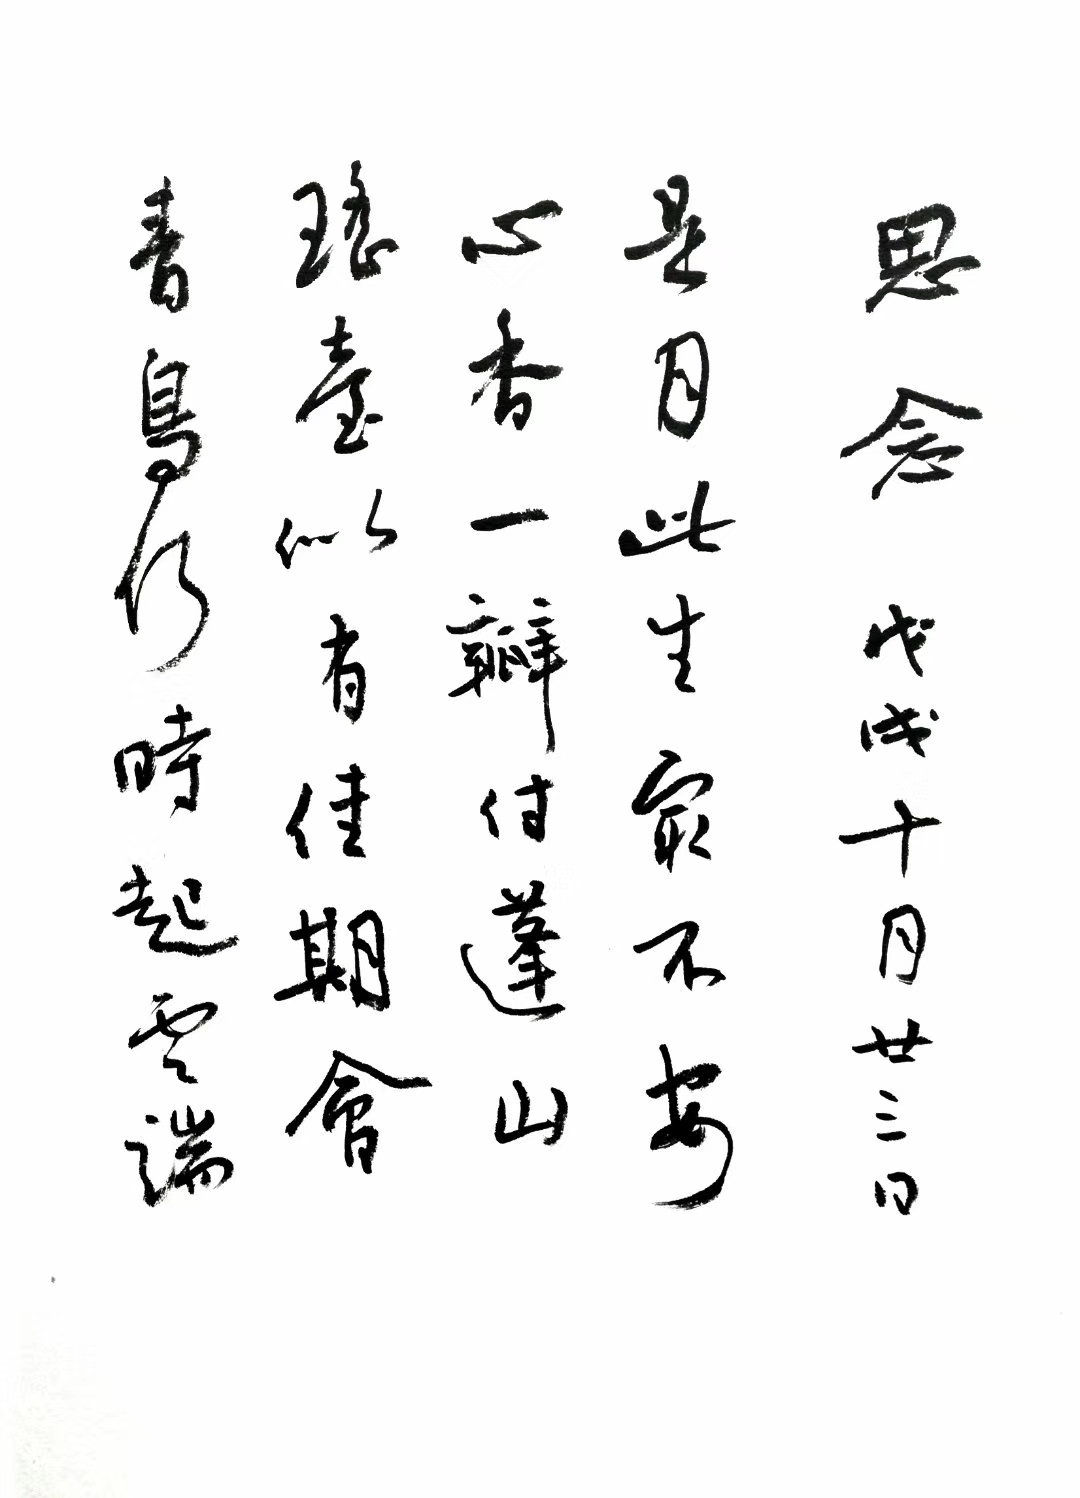 思念 戊戌十月廿三日
是月此生最不安
心香一瓣付蓬山
瑤臺似有佳期會
青鳥何時起雲端